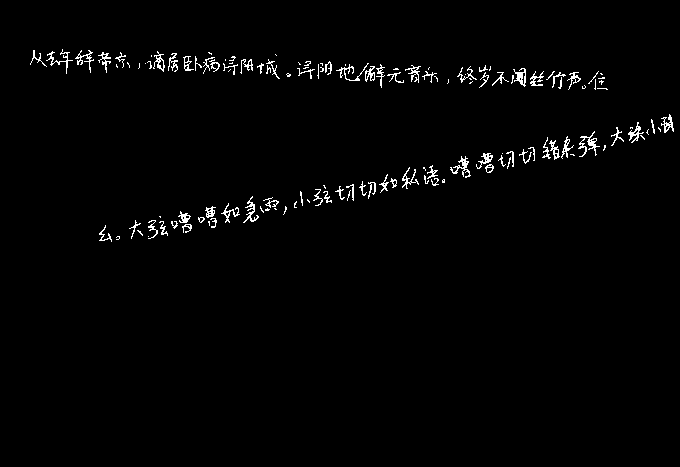 从去年辞帝京，谪居卧病浔阳城。浔阳地僻无音乐，终岁不闻丝竹声。住
幺。大弦嘈嘈如急雨，小弦切切如私语。嘈嘈切切错杂弹，大珠小珠